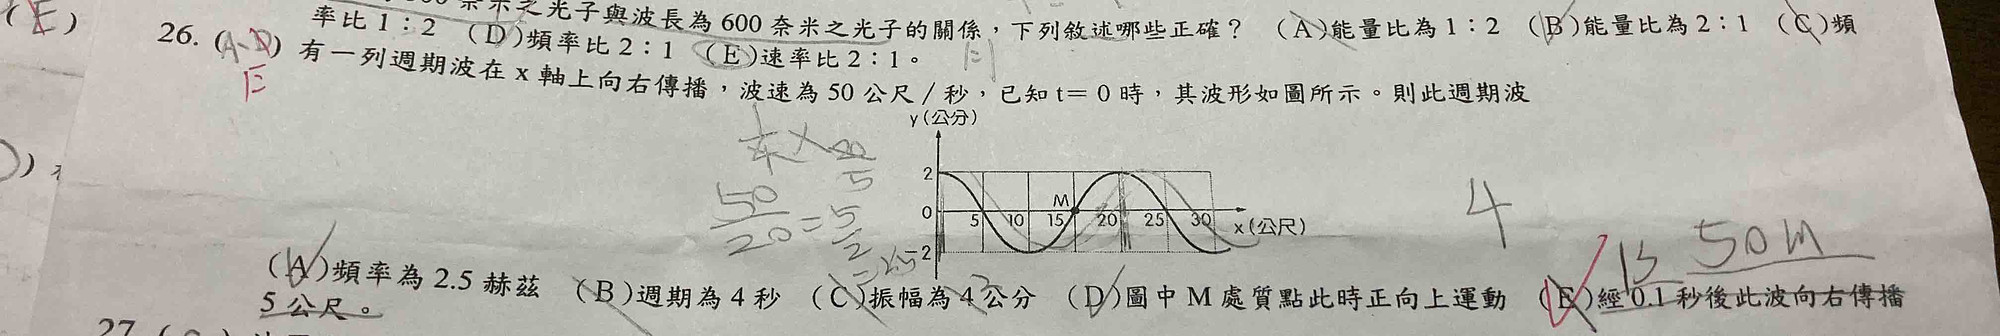 奈米之光子與波長為 600 奈米之光子的關係，下列敘述哪些正確？ (A)能量比為 1：2 (B)能量比為 2：1 (C)頻
率比 1：2 (D)頻率比 2：1 (E)速率比 2：1。
(E)
26. (A、D) 有一列週期波在 x 軸上向右傳播，波速為 50 公尺／秒，已知 t＝ 0 時，其波形如圖所示。則此週期波
E
y (公分)
2
0
-2
M
5 10 15 20 25 30
x (公尺)
50/20 = 5/2
= 2.5
4
1s 50m
(A)頻率為 2.5 赫茲 (B)週期為 4 秒 (C)振幅為 4 公分 (D)圖中 M 處質點此時正向上運動 (E)經 0.1 秒後此波向右傳播
5 公尺。
27.